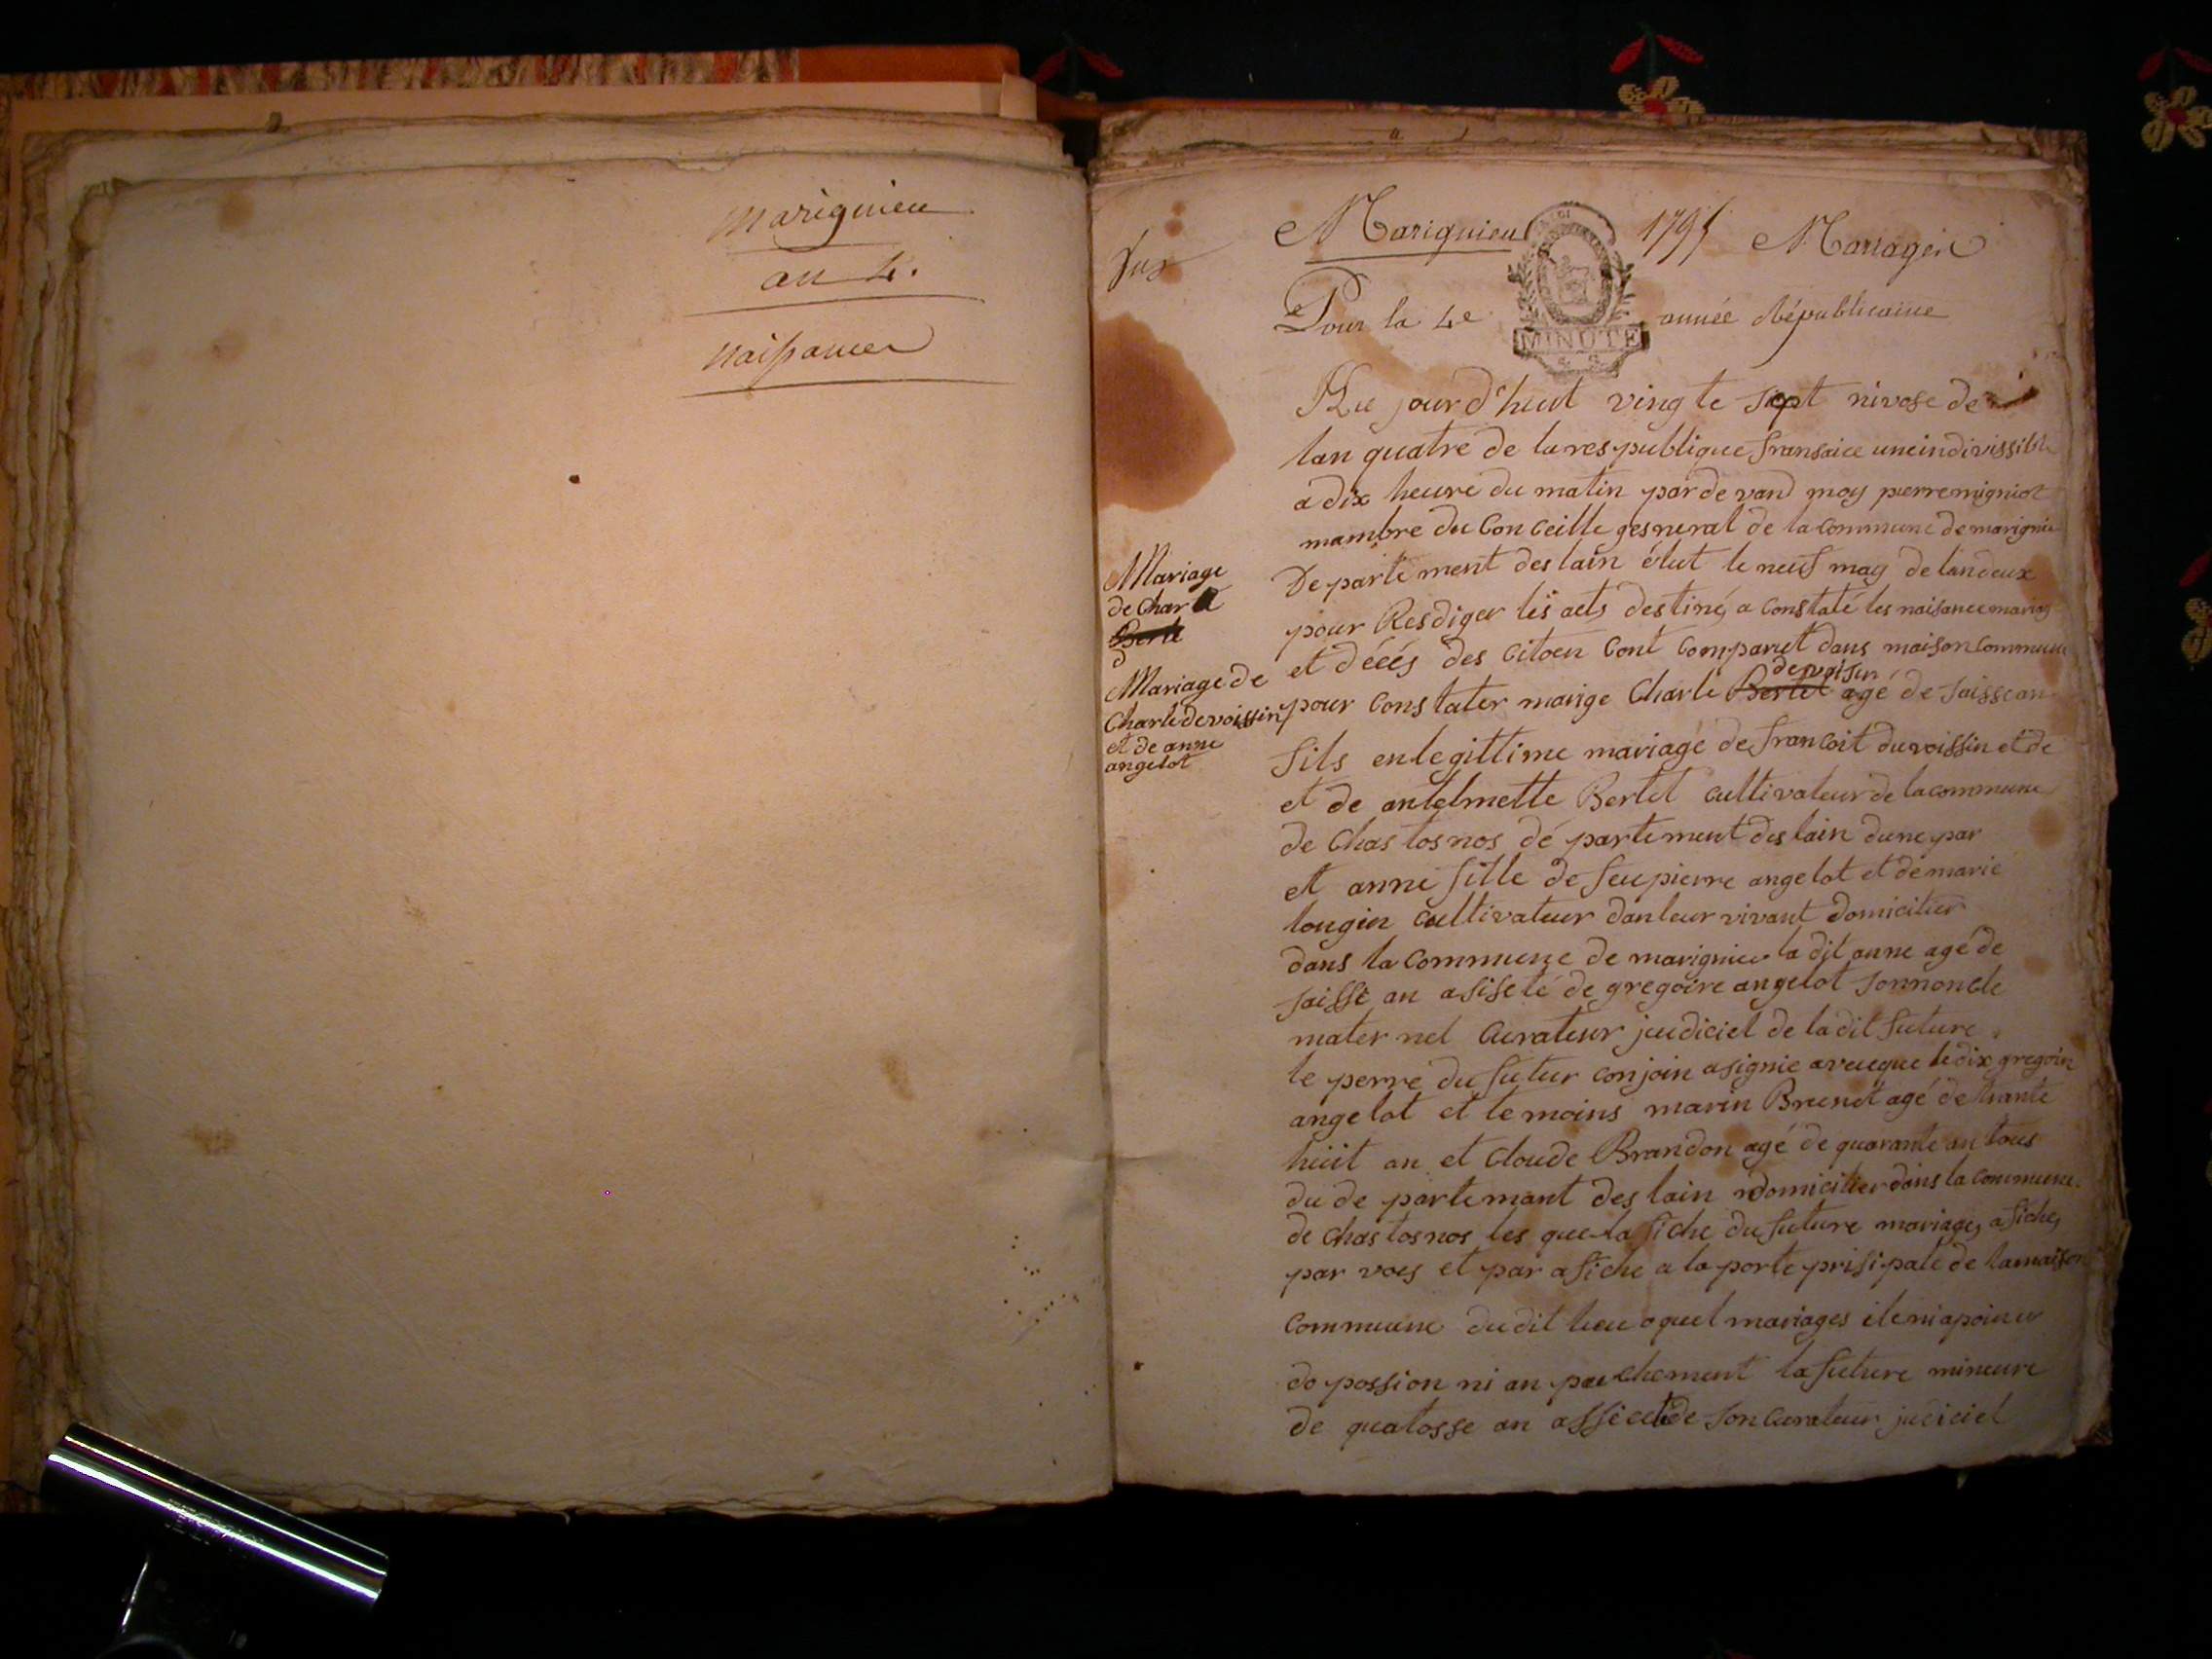 Marignieu
an 4.
naissances
Marignieu 1795 Mariages
Pour la 4e année Républicaine
MINUTE
Au jourd'huit vingte sept nivose de
lan quatre de la respublique fransaice une indivissible
a dix heure du matin par de vand moy pierre migniot
mambre du Conceille gesneral de la commune de marignieu
De parte ment des lain élut le neuf may de lan deux
pour Resdiger les acts destiné a Constaté les naisance mariag
et décés des Citoen Cont Comparut dans maison commune
devoisin
pour Constater marige Charle Bertet agé de saisse an
fils en legittime mariage de francoit devoissin et de
et de antelmette Bertet cultivateur de la commune
de Chastosnos dé partement des lain dune par
et anne fille de feu pierre angelot et de marie
lougin cultivateur dan leur vivant domicilier
dans la Commune de marignieu la dit anne agé de
saisse an asiseté de gregoire angelot son noncle
mater nel Curateur judiciel de la dit future
le perre du futur conjoin a signie avecque le dix gregoire
angelot et temoins marin Brunet agé de trante
huit an et Cloude Brandon agé de quarante an tous
du de partemant des lain domicilier dans la commune
de Chastosnos les que la fiche du future mariages afiches
par voes et par afiche a la porte prisipale de la maison
Commune du dit lieu a quel mariages il eni a poin u
do possion ni an pechement la future mineure
de quatosse an assiceté de son Curateur judiciel
Mariage
de Charle
Berte
d
Mariage de
Charle devoissin
et de anne
angelot